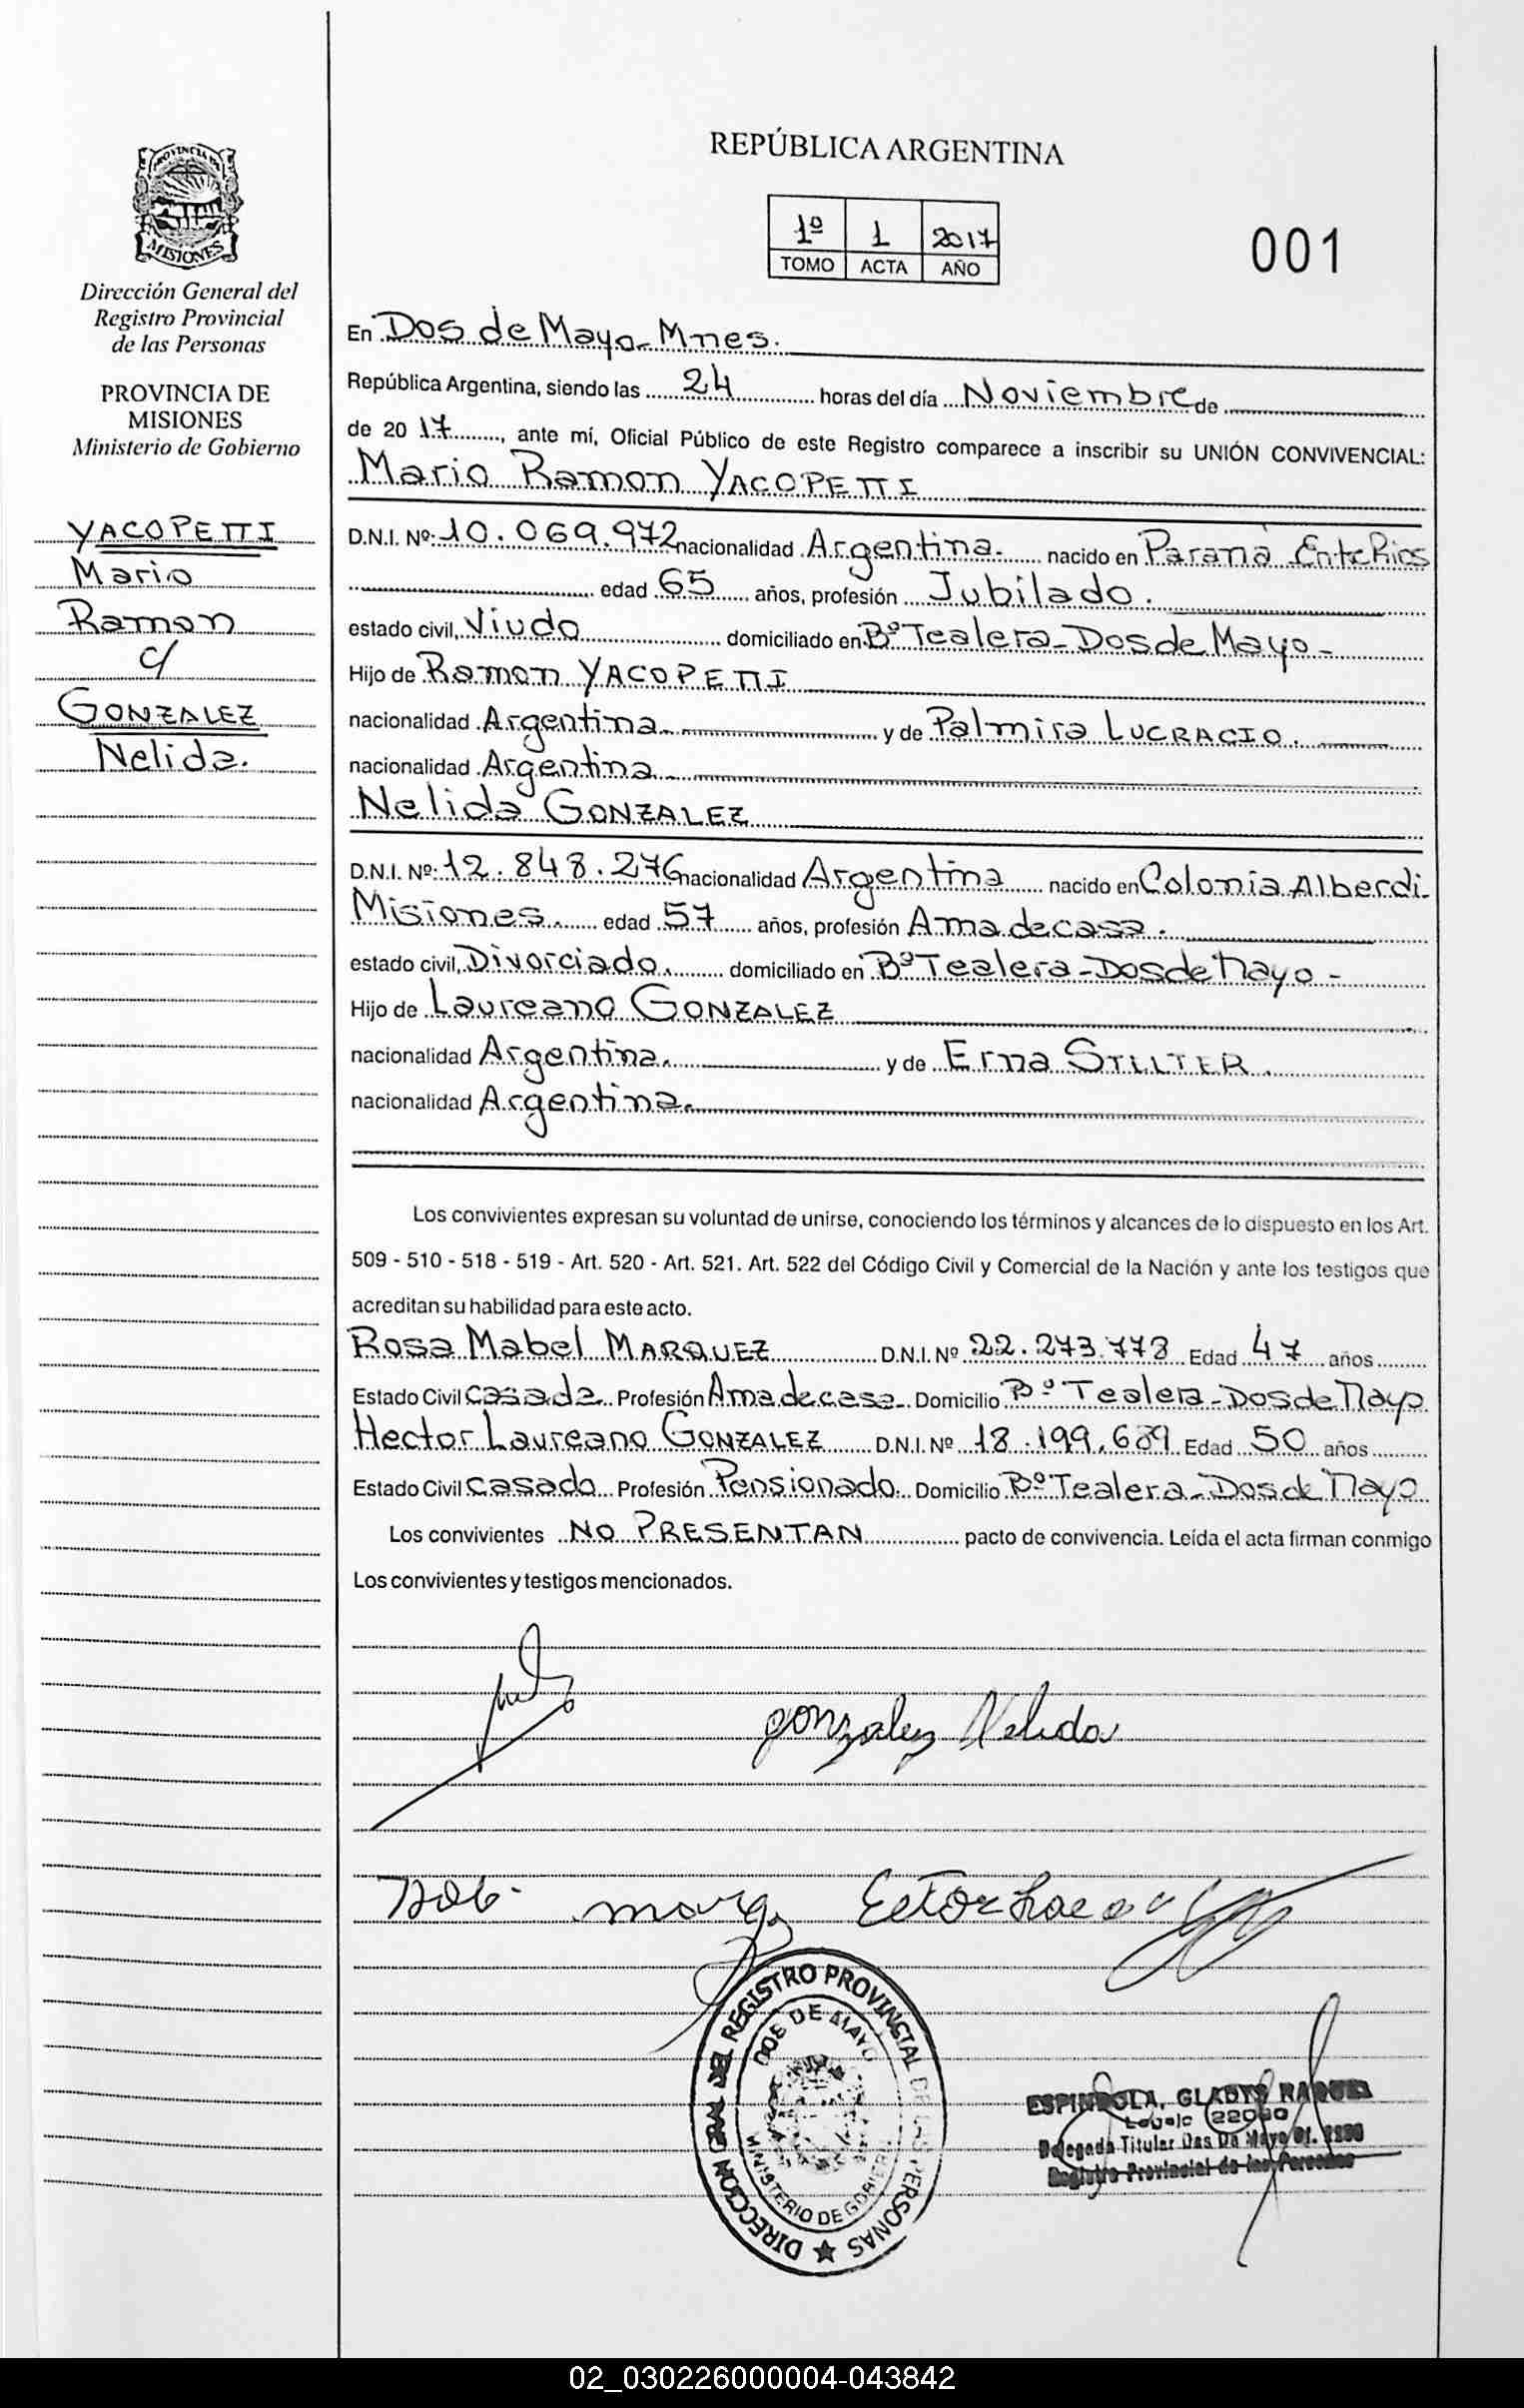 REPÚBLICA ARGENTINA
1º 1 2017
TOMO ACTA AÑO
001
PROVINCIA DE
MISIONES
Dirección General del
Registro Provincial
de las Personas
PROVINCIA DE
MISIONES
Ministerio de Gobierno
YACOPETTI
Mario
Ramon
c/
GONZALEZ
Nelida.
En Dos de Mayo-Mnes.
República Argentina, siendo las 24 horas del día Noviembre de
de 20 17, ante mí, Oficial Público de este Registro comparece a inscribir su UNIÓN CONVIVENCIAL:
Mario Ramon YACOPETTI
D.N.I. Nº: 10.069.972 nacionalidad Argentina. nacido en Paraná Entre Rios
edad 65 años, profesión Jubilado.
estado civil, Viudo domiciliado en Bº Tealera-Dos de Mayo-
Hijo de Ramon YACOPETTI
nacionalidad Argentina. y de Palmira LUCRACIO.
nacionalidad Argentina
Nelida GONZALEZ
D.N.I. Nº: 12.848.276 nacionalidad Argentina nacido en Colonia Alberdi-
Misiones. edad 57 años, profesión Ama de casa.
estado civil, Divorciado. domiciliado en Bº Tealera-Dos de Mayo-
Hijo de Laureano GONZALEZ
nacionalidad Argentina. y de Erna STILTER.
nacionalidad Argentina.
Los convivientes expresan su voluntad de unirse, conociendo los términos y alcances de lo dispuesto en los Art.
509 - 510 - 518 - 519 - Art. 520 - Art. 521. Art. 522 del Código Civil y Comercial de la Nación y ante los testigos que
acreditan su habilidad para este acto.
Rosa Mabel MARQUEZ D.N.I. Nº 22.273.778 Edad 47 años
Estado Civil casada. Profesión Ama de casa. Domicilio Bº Tealera-Dos de Mayo
Hector Laureano GONZALEZ D.N.I. Nº 18.199.689 Edad 50 años
Estado Civil casado Profesión Pensionado. Domicilio Bº Tealera-Dos de Mayo
Los convivientes NO PRESENTAN pacto de convivencia. Leída el acta firman conmigo
Los convivientes y testigos mencionados.
gonzalez Nelida
DIRECCION GRAL DEL REGISTRO PROVINCIAL DE LAS PERSONAS
DOS DE MAYO
MINISTERIO DE GOBIERNO
ESPINDOLA, GLADYS RAQUEL
Delegada Titular Dos De Mayo
Registro Provincial de las Personas
02_030226000004-043842